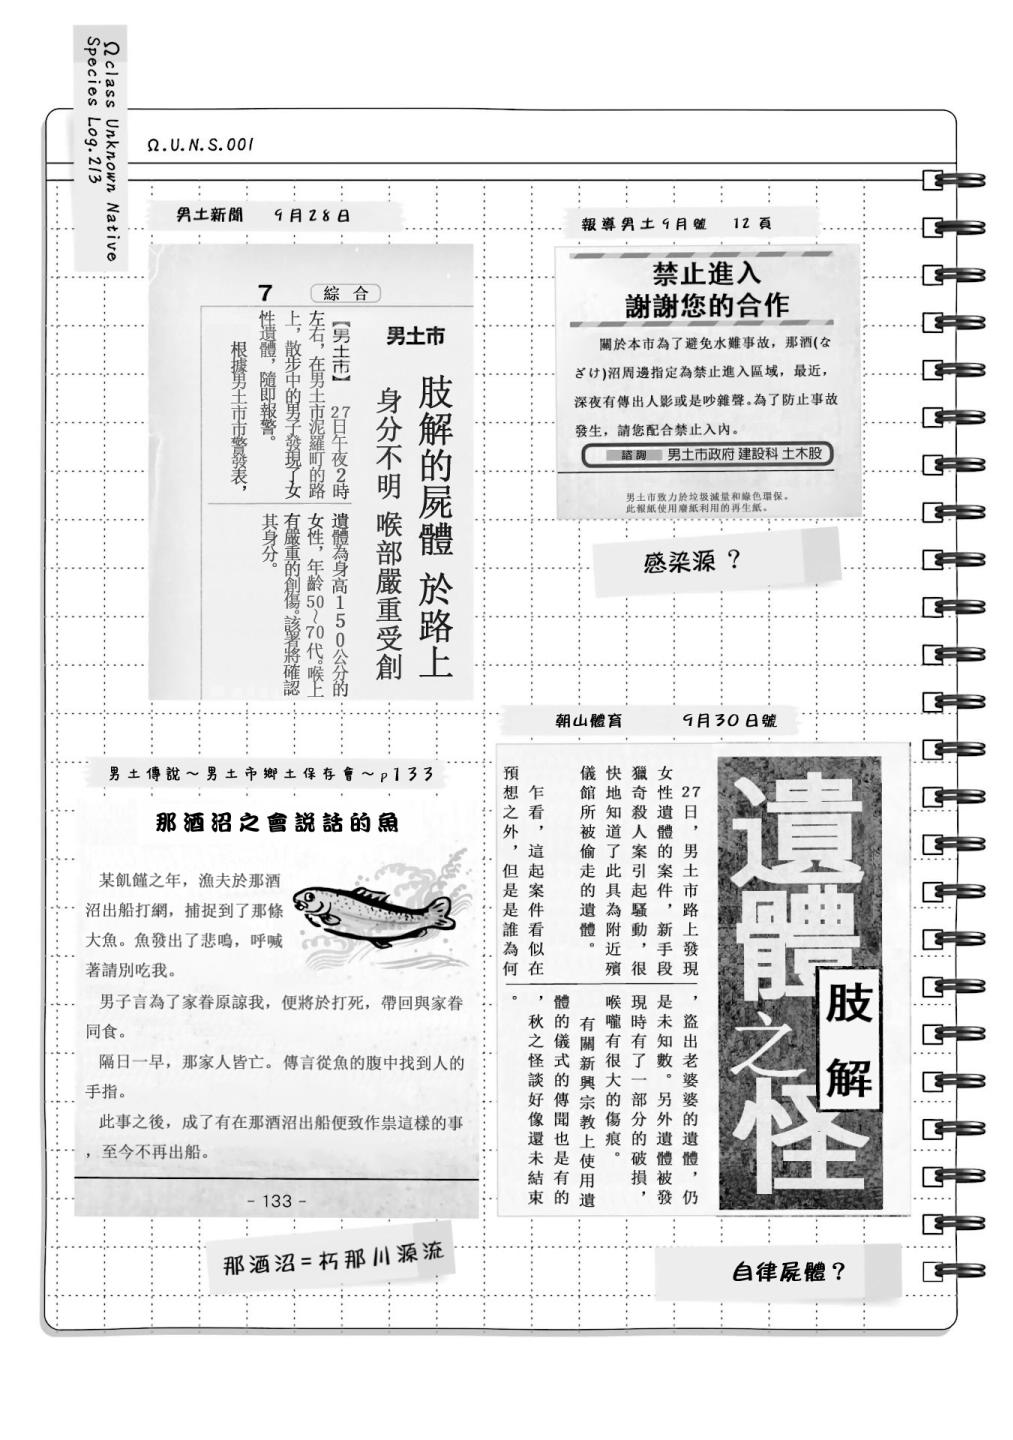 Ωclass Unknown Native
Species Log.213
Ω.U.N.S.001
男土新聞　9月28日
7
綜合
男土市
肢解的屍體 於路上
身分不明 喉部嚴重受創
【男土市】　27日午夜2時
左右，在男土市泥羅町的路
上，散步中的男子發現了女
性遺體，隨即報警。
根據男土市市警發表，
遺體為身高150公分的
女性，年齡50～70代。喉上
有嚴重的創傷。該署將確認
其身分。
報導男土9月號　12頁
禁止進入
謝謝您的合作
關於本市為了避免水難事故，那酒(な
ざけ)沼周邊指定為禁止進入區域，最近，
深夜有傳出人影或是吵雜聲。為了防止事故
發生，請您配合禁止入內。
諮詢 男土市政府 建設科 土木股
男土市致力於垃圾減量和綠色環保。
此報紙使用廢紙利用的再生紙。
感染源？
男土傳說～男土市鄉土保存會～p133
那酒沼之會說話的魚
某飢饉之年，漁夫於那酒
沼出船打網，捕捉到了那條
大魚。魚發出了悲鳴，呼喊
著請別吃我。
男子言為了家眷原諒我，便將於打死，帶回與家眷
同食。
隔日一早，那家人皆亡。傳言從魚的腹中找到人的
手指。
此事之後，成了有在那酒沼出船便致作祟這樣的事
，至今不再出船。
- 133 -
那酒沼=朽那川源流
朝山體育　9月30日號
遺體之怪
肢解
27日，男土市路上發現
女性遺體的案件，新手段
獵奇殺人案引起騷動，很
快地知道了此具為附近殯
儀館所被偷走的遺體。
乍看，這起案件看似在
預想之外，但是是誰為何
，盜出老婆婆的遺體，仍
是未知數。另外遺體被發
現時有了一部分的破損，
喉嚨有很大的傷痕。
有關新興宗教上使用遺
體的儀式的傳聞也是有的
，秋之怪談好像還未結束
。
自律屍體？